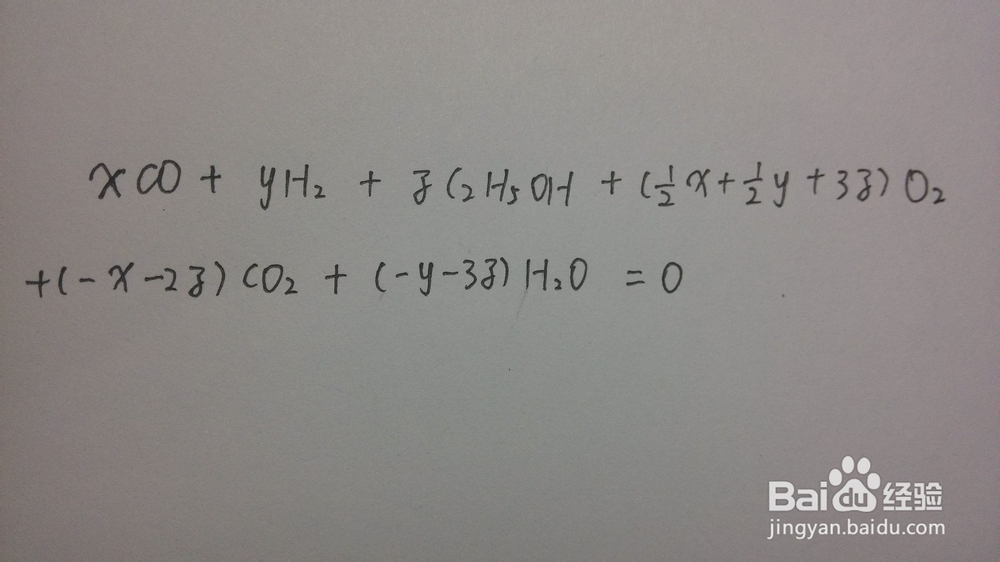 xCO + yH₂ + zC₂H₅OH + (½x + ½y + 3z) O₂
+ (-x-2z) CO₂ + (-y-3z) H₂O = 0
Baidu经验
jingyan.baidu.com